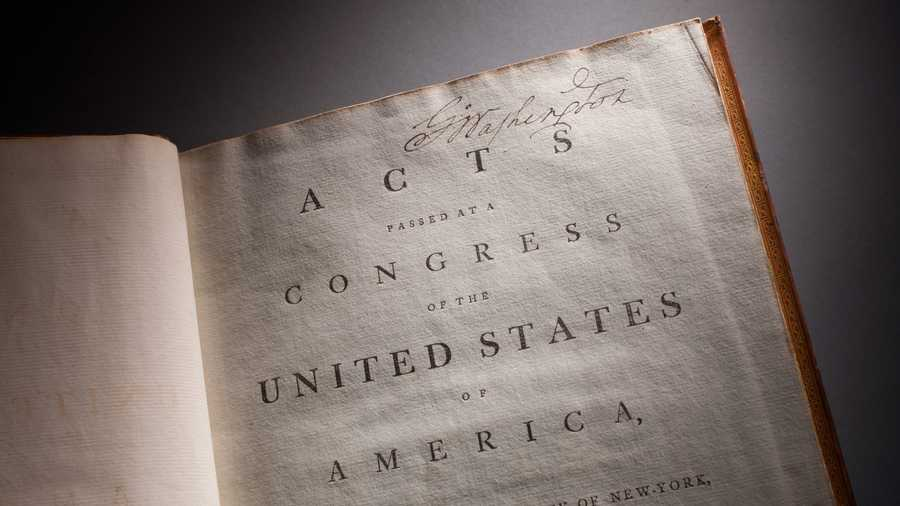 Go Washington
ACTS
PASSED AT A
CONGRESS
OF THE
UNITED STATES
OF
AMERICA,
OF NEW-YORK,